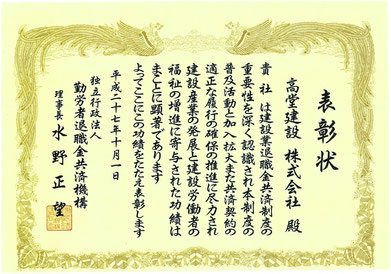 表彰状
高堂建設 株式会社 殿
貴社は建設業退職金共済制度の
重要性を深く認識され本制度の
普及活動と加入拡大また共済契約の
適正な履行の確保の推進に尽力され
建設産業の発展と建設労働者の
福祉の増進に寄与された功績は
まことに顕著であります
よってここにこの功績をたたえ表彰します
平成二十七年十月一日
独立行政法人
勤労者退職金共済機構
理事長 水野正望